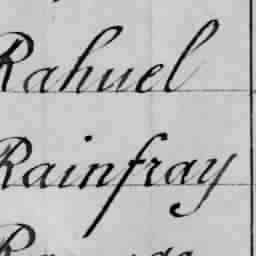 Rahuel
Rainfray